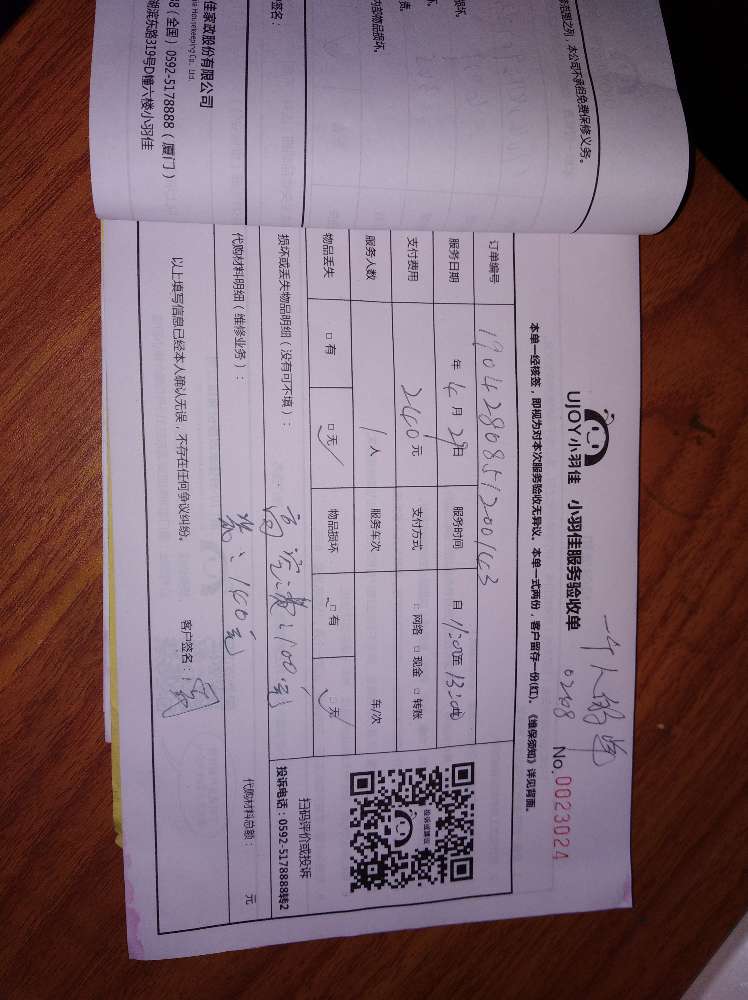 范围之列，本公司不承担免费保修义务。
损坏。
坏。
责。
内部物品损坏。
签名：
佳家政股份有限公司
ia Housekeeping Co., Ltd.
88（全国）0592-5178888（厦门）
湖滨东路319号D幢六楼小羽佳
一个人的单
02108
UJOY小羽佳 小羽佳服务验收单
No.0023024
本单一经核签，即视为对本次服务验收无异议。本单一式两份，客户留存一份(红)。《维保须知》详见背面。
订单编号 19042808512001443
服务日期 年 4 月 29 日 服务时间 自 11:00至 13:00止
支付费用 240 元 支付方式 □ 网络 □ 现金 □ 转账
服务人数 1 人 服务车次 车/次
物品丢失 □ 有 □ 无 ✓ 物品损坏 □ 有 □ 无 ✓
损坏或丢失物品明细（没有可不填）：
费：100.元
代购材料明细（维修业务）：
：140元
代购材料总额： 元
以上填写信息已经本人确认无误，不存在任何争议纠纷。
客户签名：
投诉或建议
扫码评价或投诉
投诉电话：0592-5178888转2